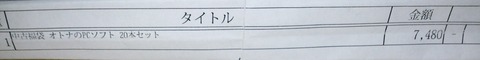 タイトル 金額
1 中古福袋 オトナのPCソフト 20本セット 7,480 -